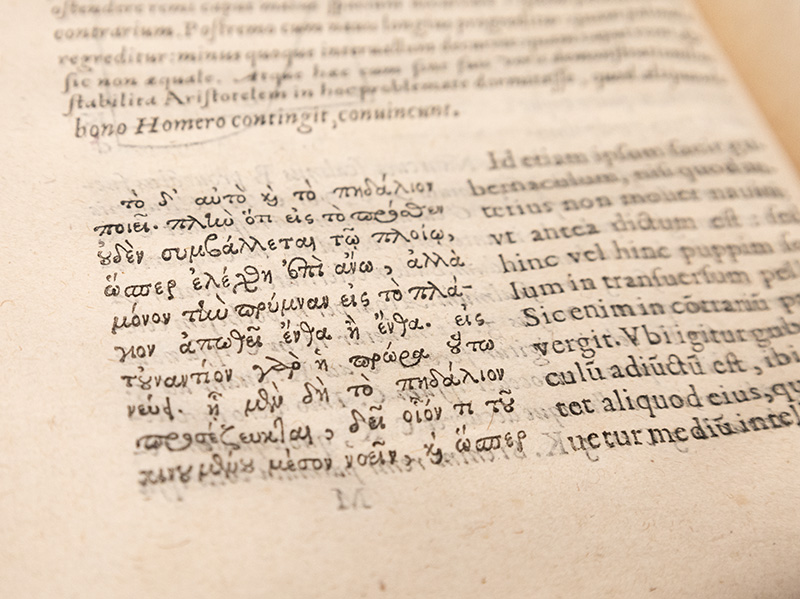 contrarium. Postremo cum
regreditur: minus quoque interuallum
sic non æquale. Atque hæc cum sint
stabilita Aristotelem in hoc problemate dormitasse, quod aliquando
bono Homero contingit, conuincunt.
τὸ δ' αὐτὸ ϗ τὸ πηδάλιον
ποιεῖ. πλὴν ὅτι εἰς τὸ πρόσθεν
ȣ̓δὲν συμβάλλεται τῷ πλοίῳ,
ὥσπερ ἐλέχθη ἐπὶ ἄνω, ἀλλὰ
μόνον τὴν πρύμναν εἰς τὸ πλά-
γιον ἀπωθεῖ ἔνθα ἢ ἔνθα. εἰς
τȣ̓ναντίον γὰρ ἡ πρώρα ȣ̔́τω
νεύει. ᾗ μὲν δὴ τὸ πηδάλιον
προσέζευκται, δεῖ οἷόν τι τοῦ
κινȣμένȣ μέσον νοεῖν, ϗ ὥσπερ
Id etiam ipsum facit gu-
bernaculum, nisi quod
terius non mouet nauim
vt antea dictum est: sed
hinc vel hinc puppim
lum in transuersum pell
Sic enim in cōtrariū pr
vergit. Vbi igitur gub
culū adiūctū est, ibi
tet aliquod eius, qu
uetur mediū intel